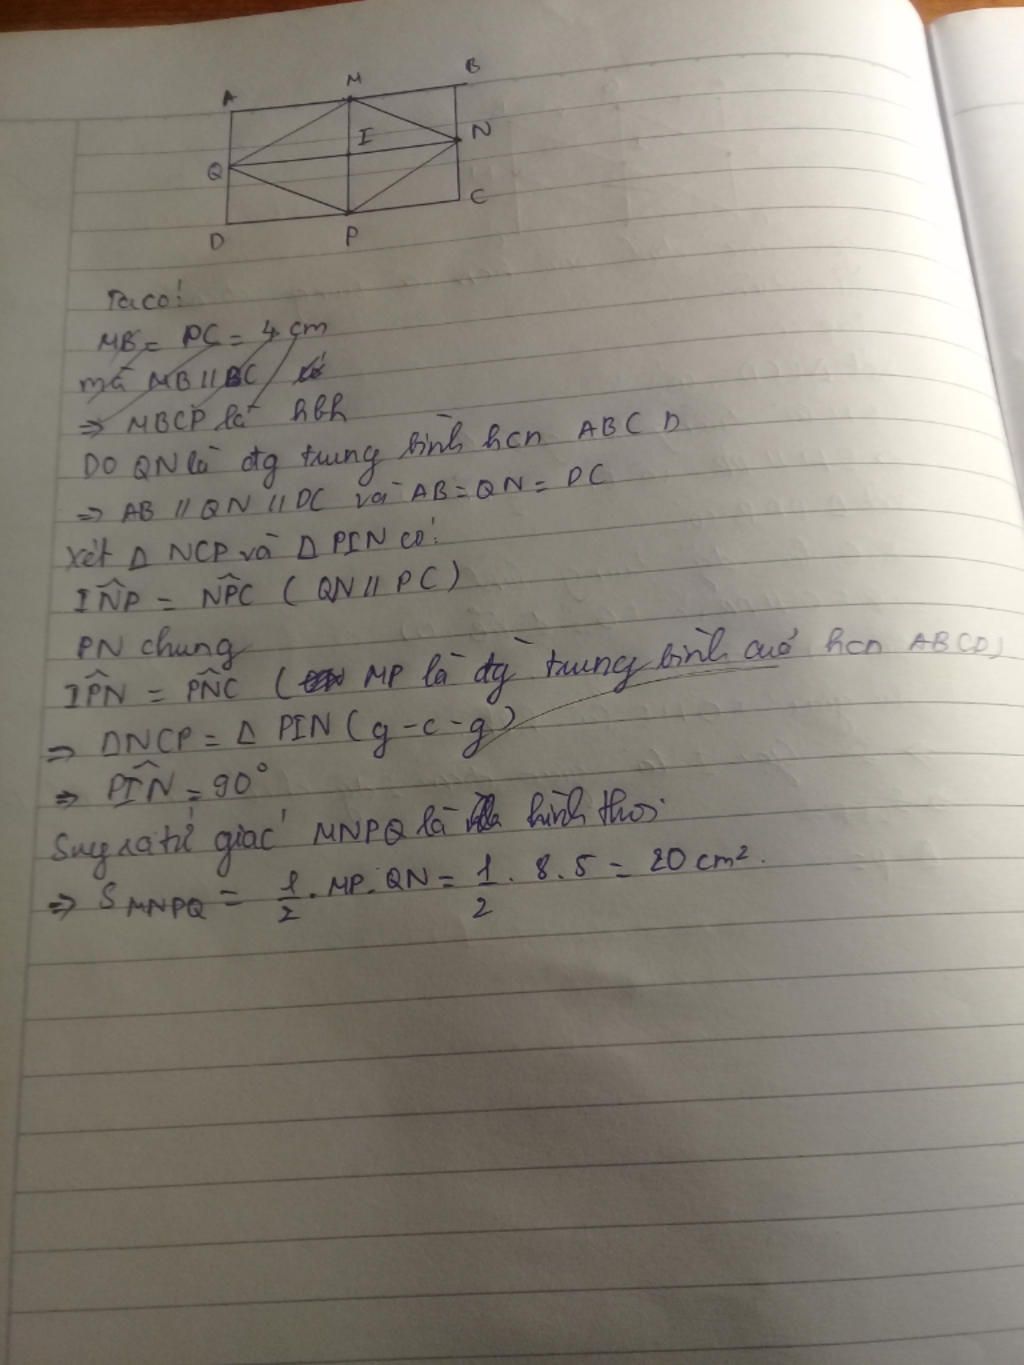 A M B
I
Q N
D P C
Ta có:
MB = PC = 4 cm
mà MB // BC
=> MBCP là hbh
DO QN là đg trung bình hcn ABCD
=> AB // QN // DC và AB = QN = DC
Xét Δ NCP và Δ PIN có:
IN̂P = NP̂C ( QN // PC )
PN chung
IP̂N = PN̂C ( MP là đg trung bình cuả hcn ABCD)
=> ΔNCP = Δ PIN ( g - c - g )
=> PÎN = 90°
Suy ra tứ giác MNPQ là hình thoi
=> S MNPQ = 1/2 . MP . QN = 1/2 . 8 . 5 = 20 cm².